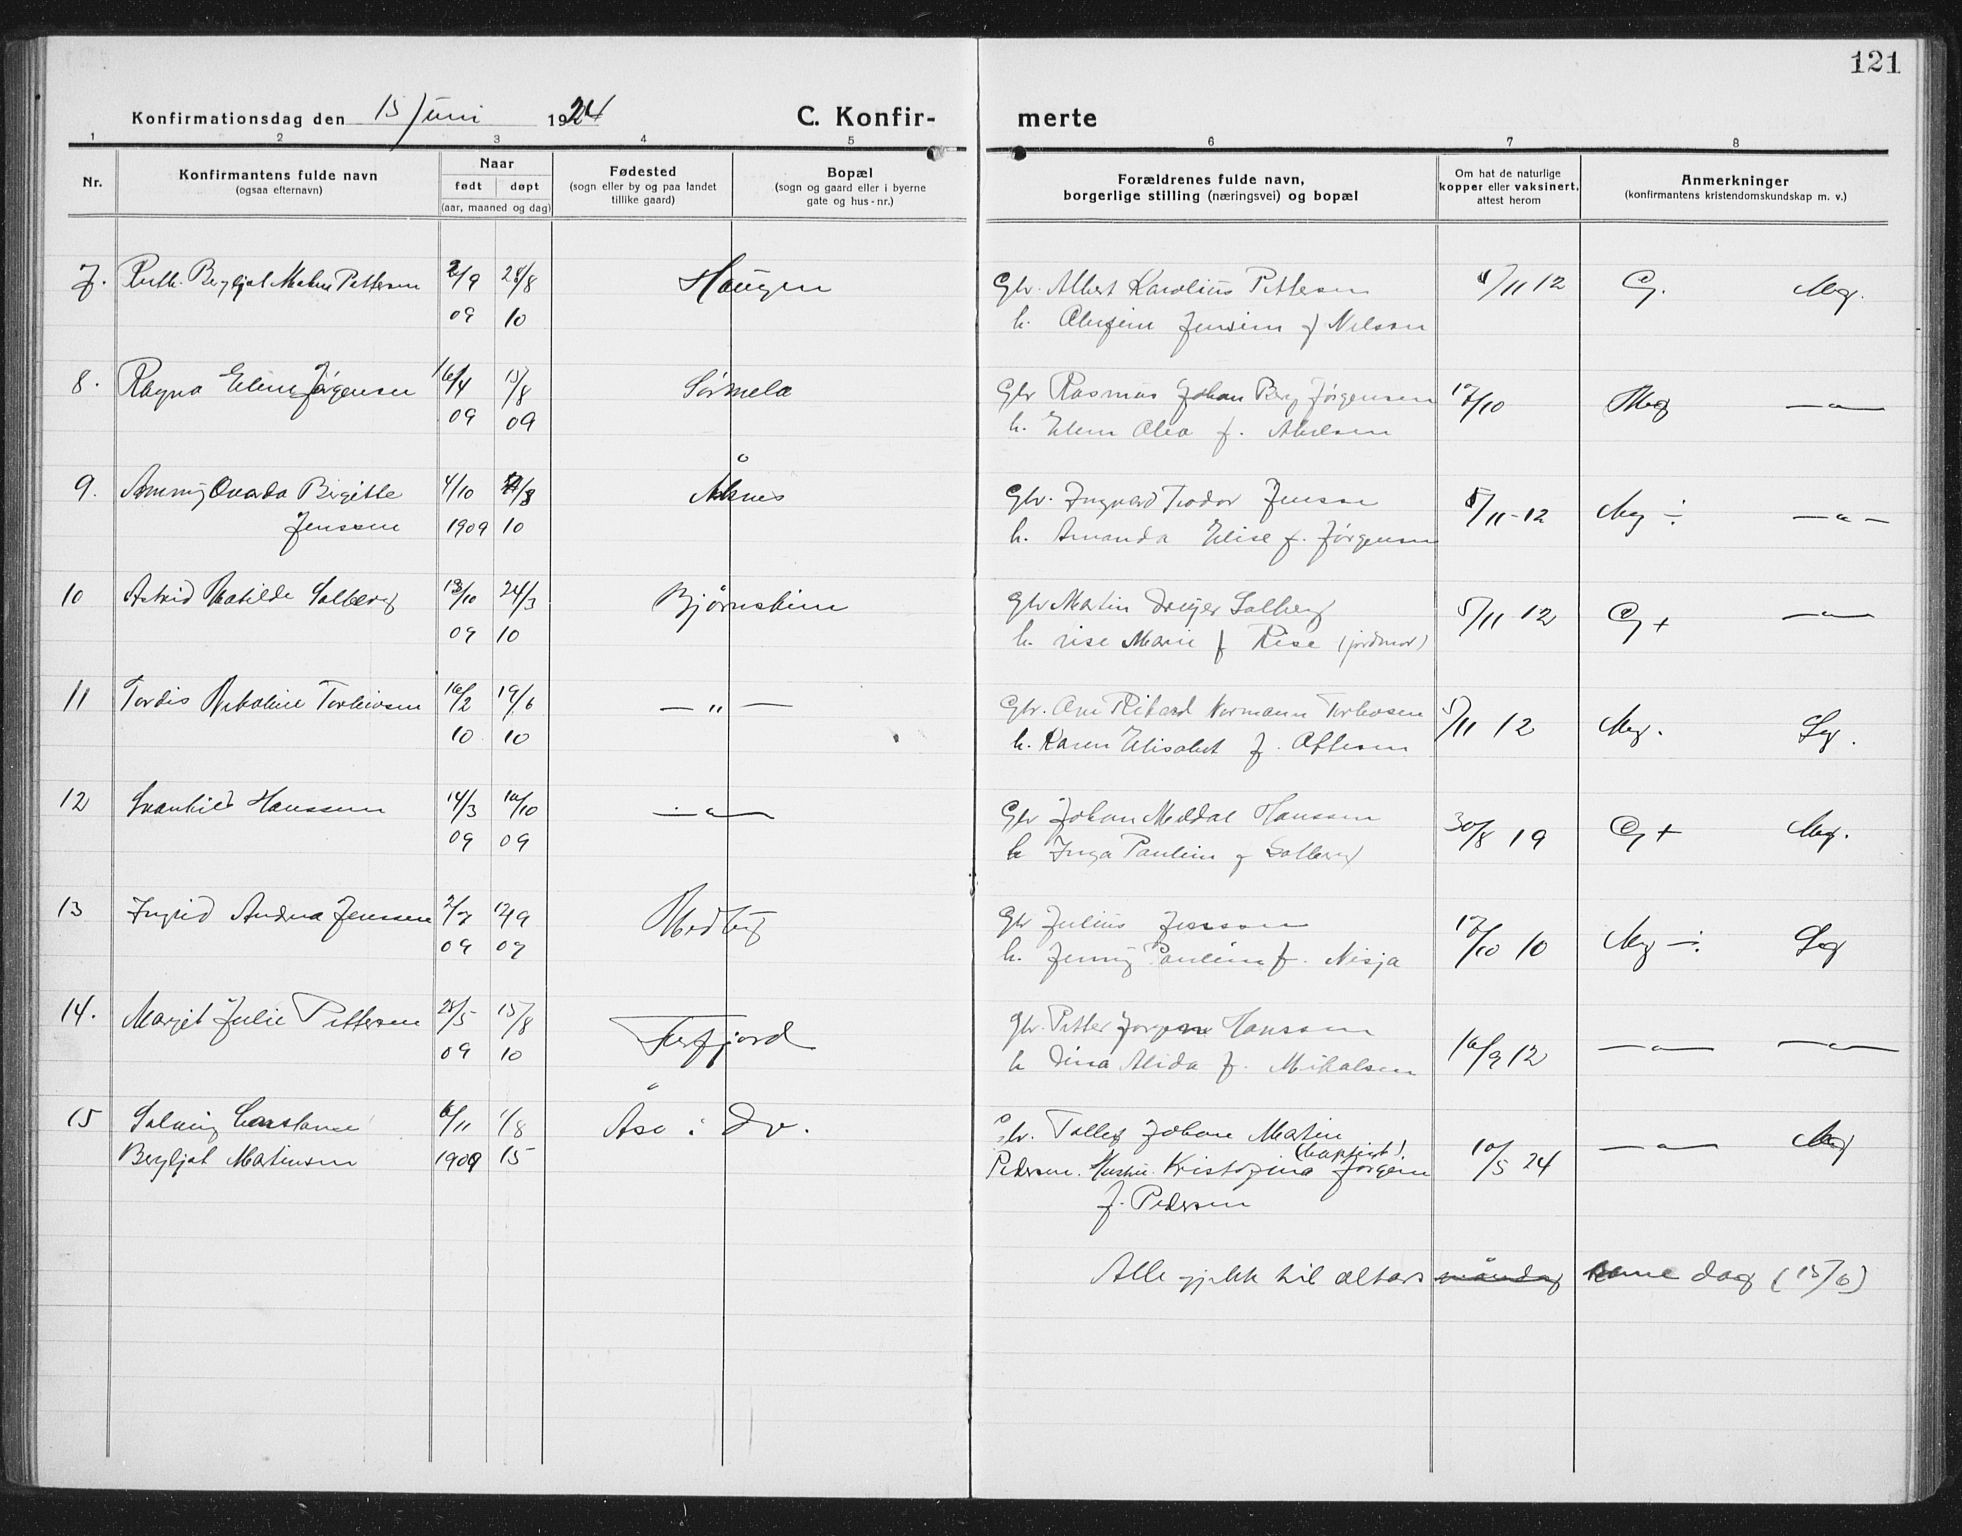 121
Konfirmationsdag den 15 Juni 1924 C. Konfir- merte
1 2 3 4 5 6 7 8
Nr. Konfirmantens fulde navn (ogsaa efternavn) Naar født døpt (aar, maaned og dag) Fødested (sogn eller by og paa landet tillike gaard) Bopæl (sogn og gaard eller i byerne gate og hus-nr.) Forældrenes fulde navn, borgerlige stilling (næringsvei) og bopæl Om hat de naturlige kopper eller vaksinert, attest herom Anmerkninger (konfirmantens kristendomskundskap m. v.)
7. Ruth Bergljot Pettersen 2/9 28/8 Haugen Gbr. Albert Karolius Pettersen 5/11 12 G. Mg.
09 10 h. Jensine f Nilsen
8. Ragna Eline Jørgensen 16/4 15/8 Sørmela Gbr Rasmus Johan Berg Jørgensen 17/10 Mg —"—
09 09 h. Elen Olea f.
9. Ovarda Birgitte 4/10 /8 Åknes Gbr. Ingvard Teodor Jensen 5/11-12 Mg ÷ —"—
Jenssen 1909 10 h. Amanda Elise f. Jørgensen
10 Astrid Matilde Solberg 13/10 24/3 Bjørnskin Gbr Martin Dreyer Solberg 5/11 12 G + —"—
09 10 h. Marie f Rise (jordmor)
11 Tordis Nikoline 16/2 19/6 — " — Gbr. Rikard Normann 5/11 12 Mg. Sg.
10 10 h. Karen Elisabet f.
12 Svanhild Hanssen 14/3 10/10 —"— Gbr Johan Meldal Hanssen 30/8 19 G + Mg.
09 09 h Inga Pauline f Solberg
13 Ingrid Andrea Jenssen 2/7 12/9 Medby Gbr Julius Jensson 17/10 10 Mg ÷ Sg
09 09 h. Jenny Pauline f. Nisja
14. Margit Julie Pettersen 28/5 15/8 Forfjord Gbr. Petter Jørgen Hanssen 16/9 12 —"— —"—
09 10 h Dina Alida f. Mikalsen
15 Solveig Constanse 6/11 1/8 Åse i Dv. Gbr. Tollef Johan Martin 10/5 24 —"— Mg
(baptist).
Bergljot Martinsen 1909 15 Pedersen. Hustru. Kristofina Jørgine
f. Pedersen
Alle gjekk til alters måndag same dag (15/6)